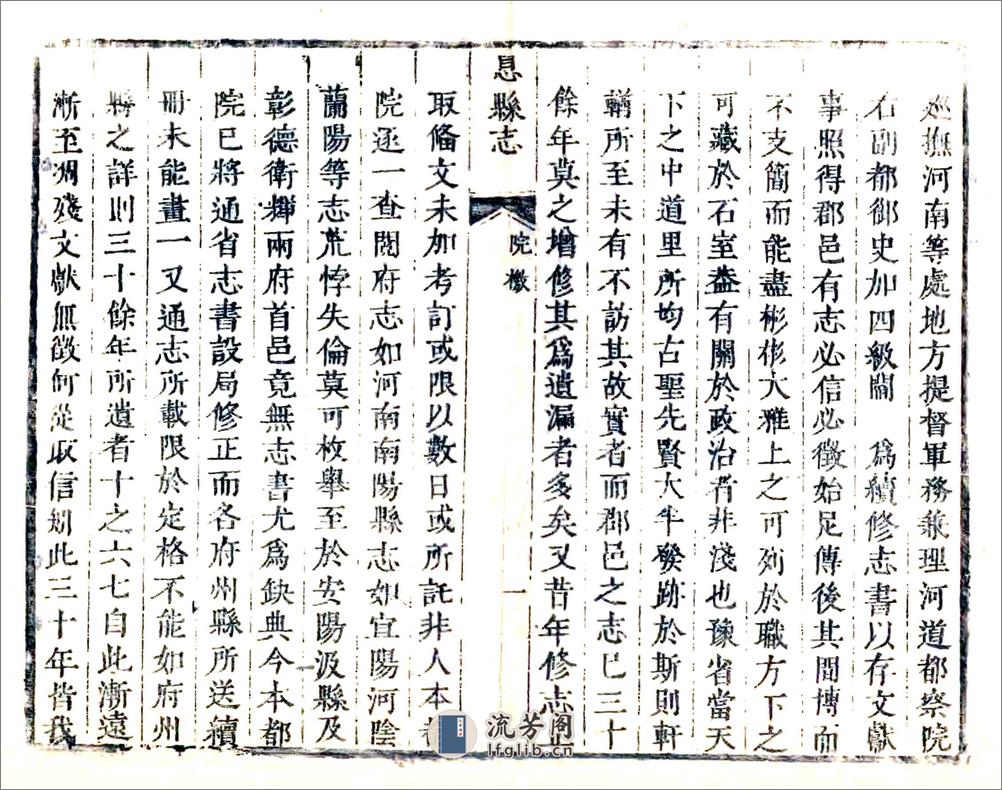 巡撫河南等處地方提督軍務兼理河道都察院
右副都御史加四級閻　為續修志書以存文獻
事照得郡邑有志必信必徵始足傳後其間博而
不支簡而能盡彬彬大雅上之可列於職方下之
可藏於石室蓋有關於政治者非淺也豫省當天
下之中道里所均古聖先賢大半發跡於斯則軒
輶所至未有不訪其故實者而郡邑之志巳三十
餘年莫之增修其為遺漏者多矣又昔年修志
息縣志
院檄
一
取備文未加考訂或限以數日或所託非人本
院逐一查閱府志如河南南陽縣志如宜陽河陰
蘭陽等志荒悖失倫莫可枚舉至於安陽汲縣及
彰德衛輝兩府首邑竟無志書尤為缺典今本都
院巳將通省志書設局修正而各府州縣所送續
冊未能畫一又通志所載限於定格不能如府州
縣之詳則三十餘年所遺者十之六七自此漸遠
漸至凋殘文獻無徵何從取信矧此三十年皆我
流芳阁
lfglib.cn